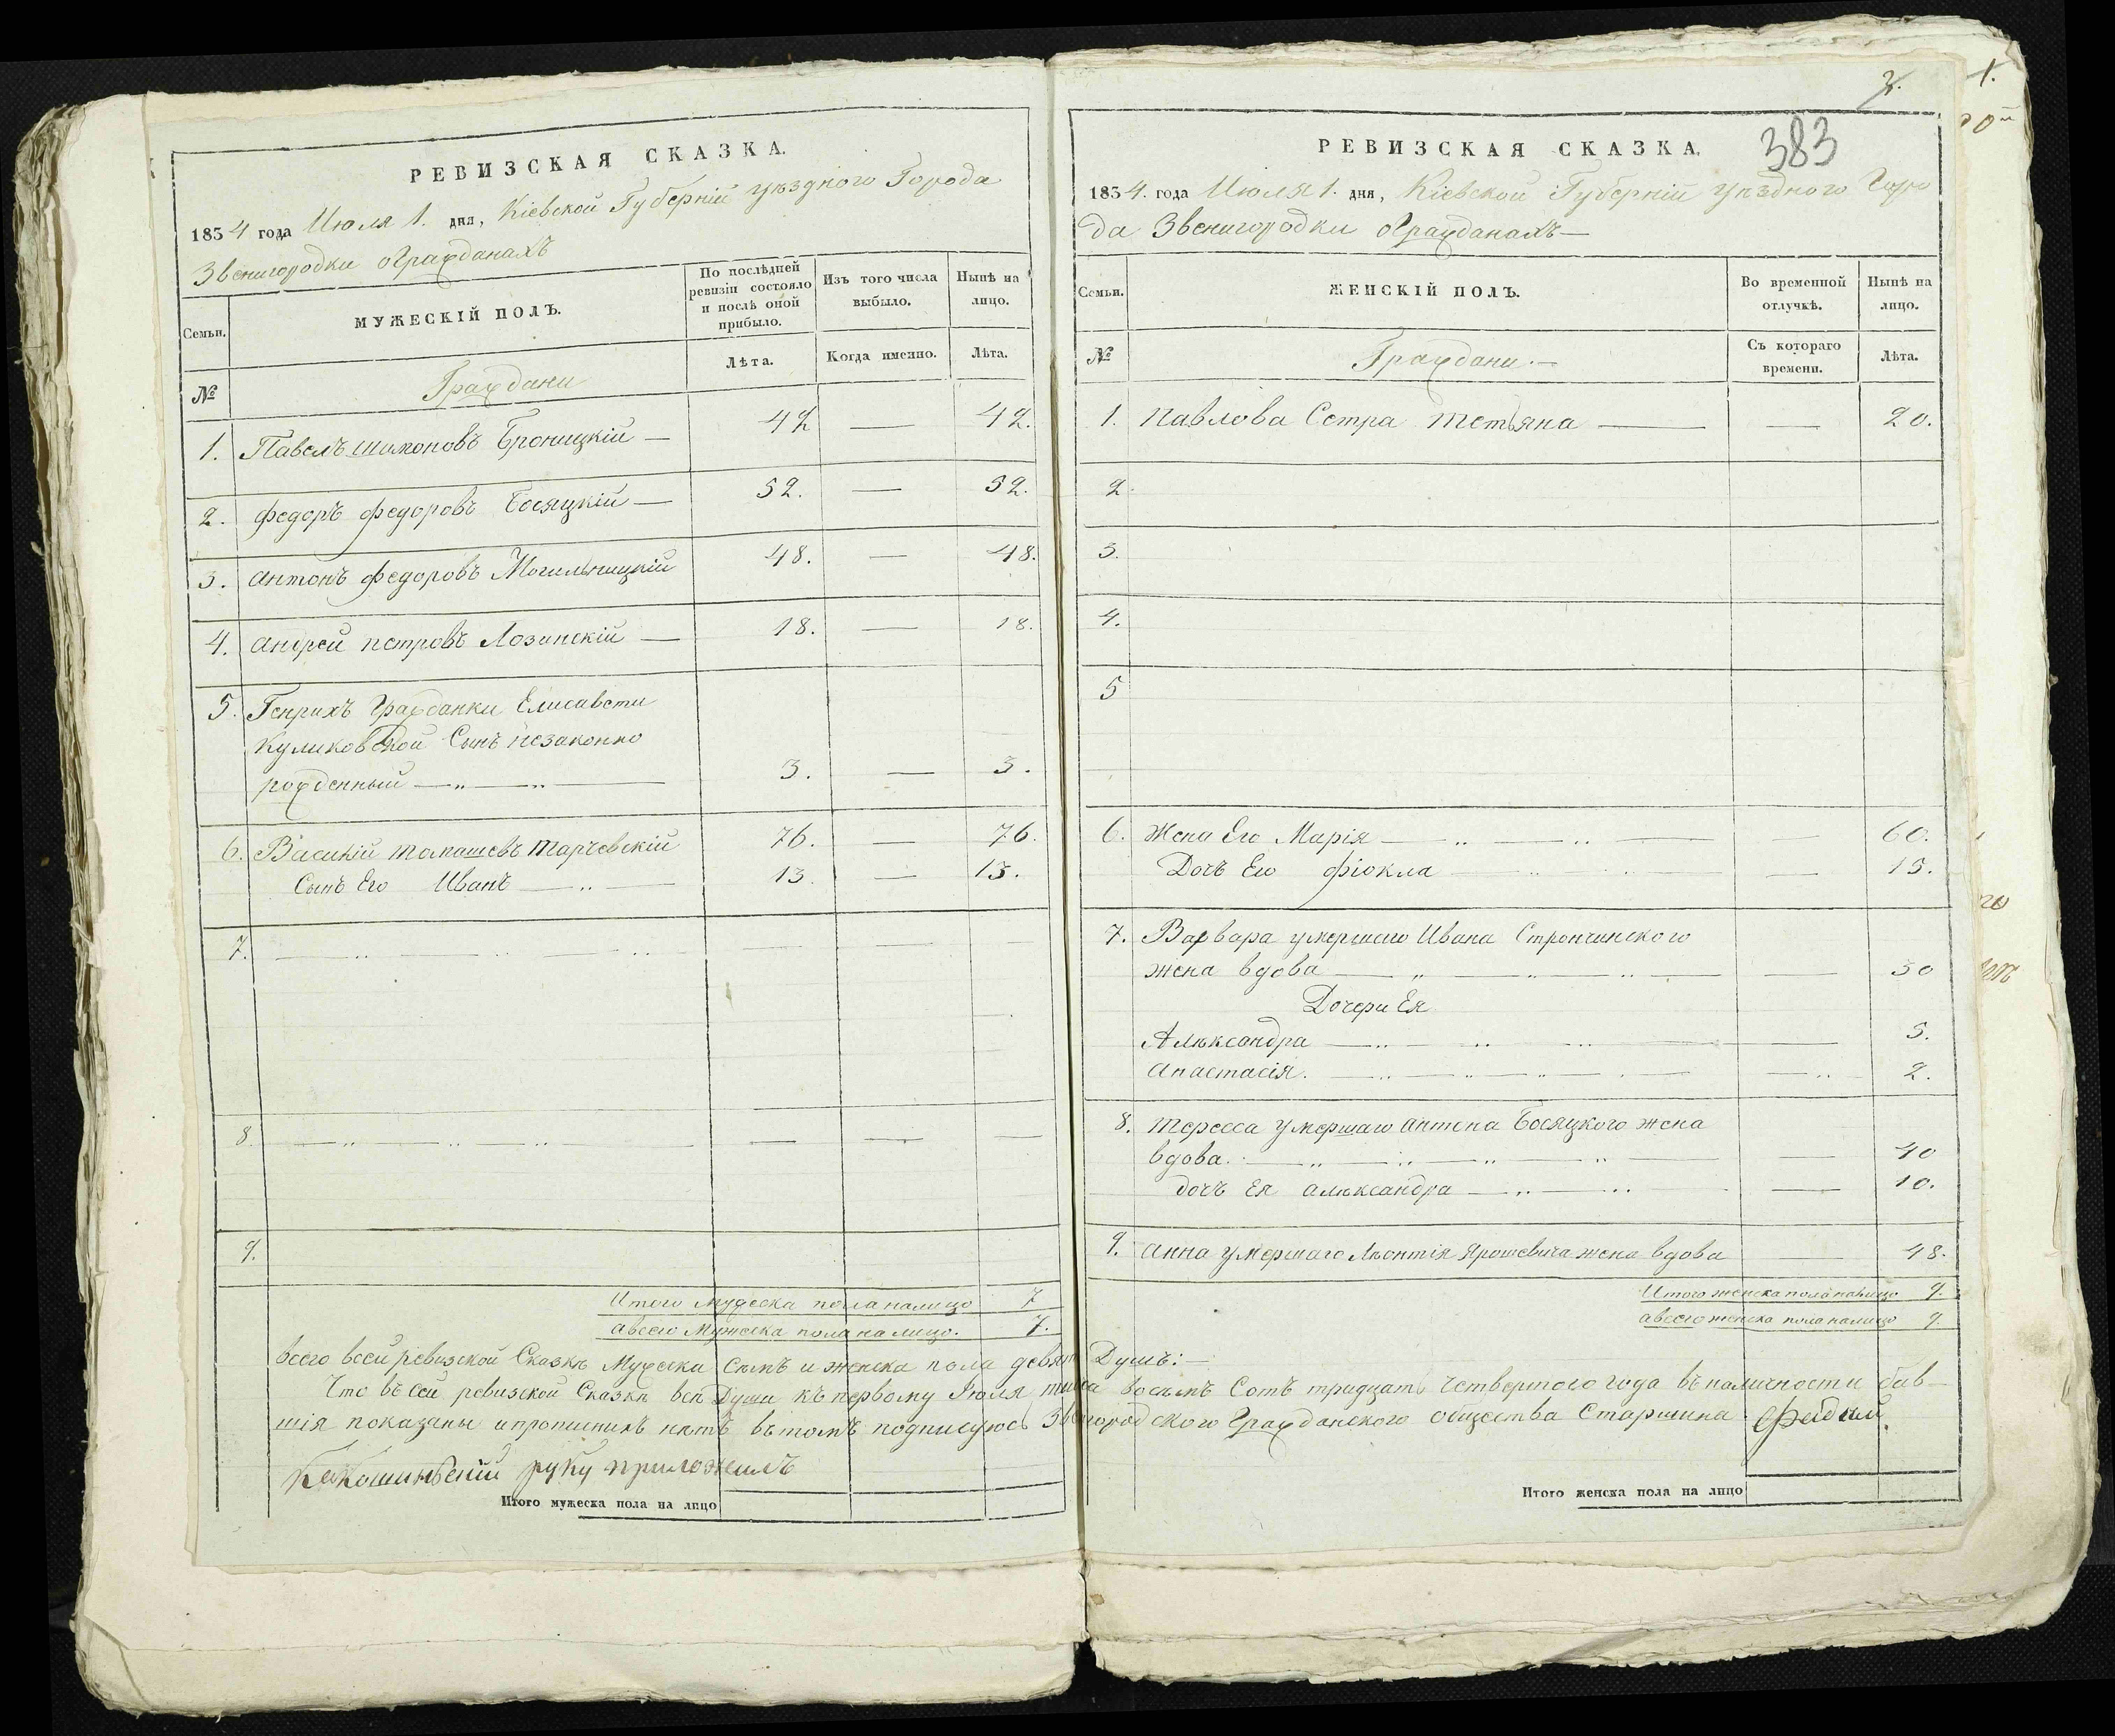 РЕВИЗСКАЯ СКАЗКА.
1834 года Июля 1. дня, Кіевской Губерніи уѣзднаго Города
Звенигородки о Гражданахъ
Семьи.
МУЖЕСКІЙ ПОЛЪ.
По послѣдней ревизіи состояло и послѣ оной прибыло.
Изъ того числа выбыло.
Нынѣ на лицо.
№
Граждани
Лѣта.
Когда именно.
Лѣта.
1. Павелъ Шимоновъ Броницкій — 42 — 42.
2. Федоръ Федоровъ Босяцкій — 52. — 52.
3. Антонъ Федоровъ Могильницкій 48. — 48.
4. Андрей Петровъ Лозинскій — 18. — 18.
5. Генрихъ Гражданки Елисавети
Куликовской Сынъ незаконно
рожденный — 3. — 3.
6. Василій Томашевъ Тарчевскій 76. — 76.
Сынъ Его Иванъ — 13. — 13.
7.
8.
9.
Итого мужеска пола налицо 7
А всего Мужеска пола на лицо. 7.
РЕВИЗСКАЯ СКАЗКА.
2.
383
1834. года Июля 1. дня, Кіевской Губерніи уѣздного Горо
да Звенигородки о Гражданахъ —
Семьи.
ЖЕНСКІЙ ПОЛЪ.
Во временной отлучкѣ.
Нынѣ на лицо.
№
Граждани. —
Съ котораго времени.
Лѣта.
1. Павлова Сестра Тетьяна — — 20.
2.
3.
4.
5
6. Жена Его Марія — — 60.
Дочь Его Фіокла — 15.
7. Варвара умершаго Ивана Стропчинского
жена вдова — — 30
Дочери Ея
Алѣксандра — — 5.
Анастасія. — — 2.
8. Тересса умершаго Антона Босяцкого жена
вдова. — — 40
дочь Ея Алѣксандра — — 10.
9. Анна умершаго Лѣонтія Ярошевича жена вдова — 48.
Итого женска пола налицо 9.
А всего женска пола налицо 9
Всего всей ревизской Сказкѣ Мужеска семь и женска пола девять Душъ: —
Что въ сей ревизской Сказкѣ всѣ Души къ первому Июля тысяча восемъ Сотъ тридцать четвертого года въ наличности бив—
шія показаны и пропишихъ нѣтъ въ томъ подписуюсь Звенигородского Гражданского общества Старшина.
руку приложилъ
Итого мужеска пола на лицо
Итого женска пола на лицо
1.